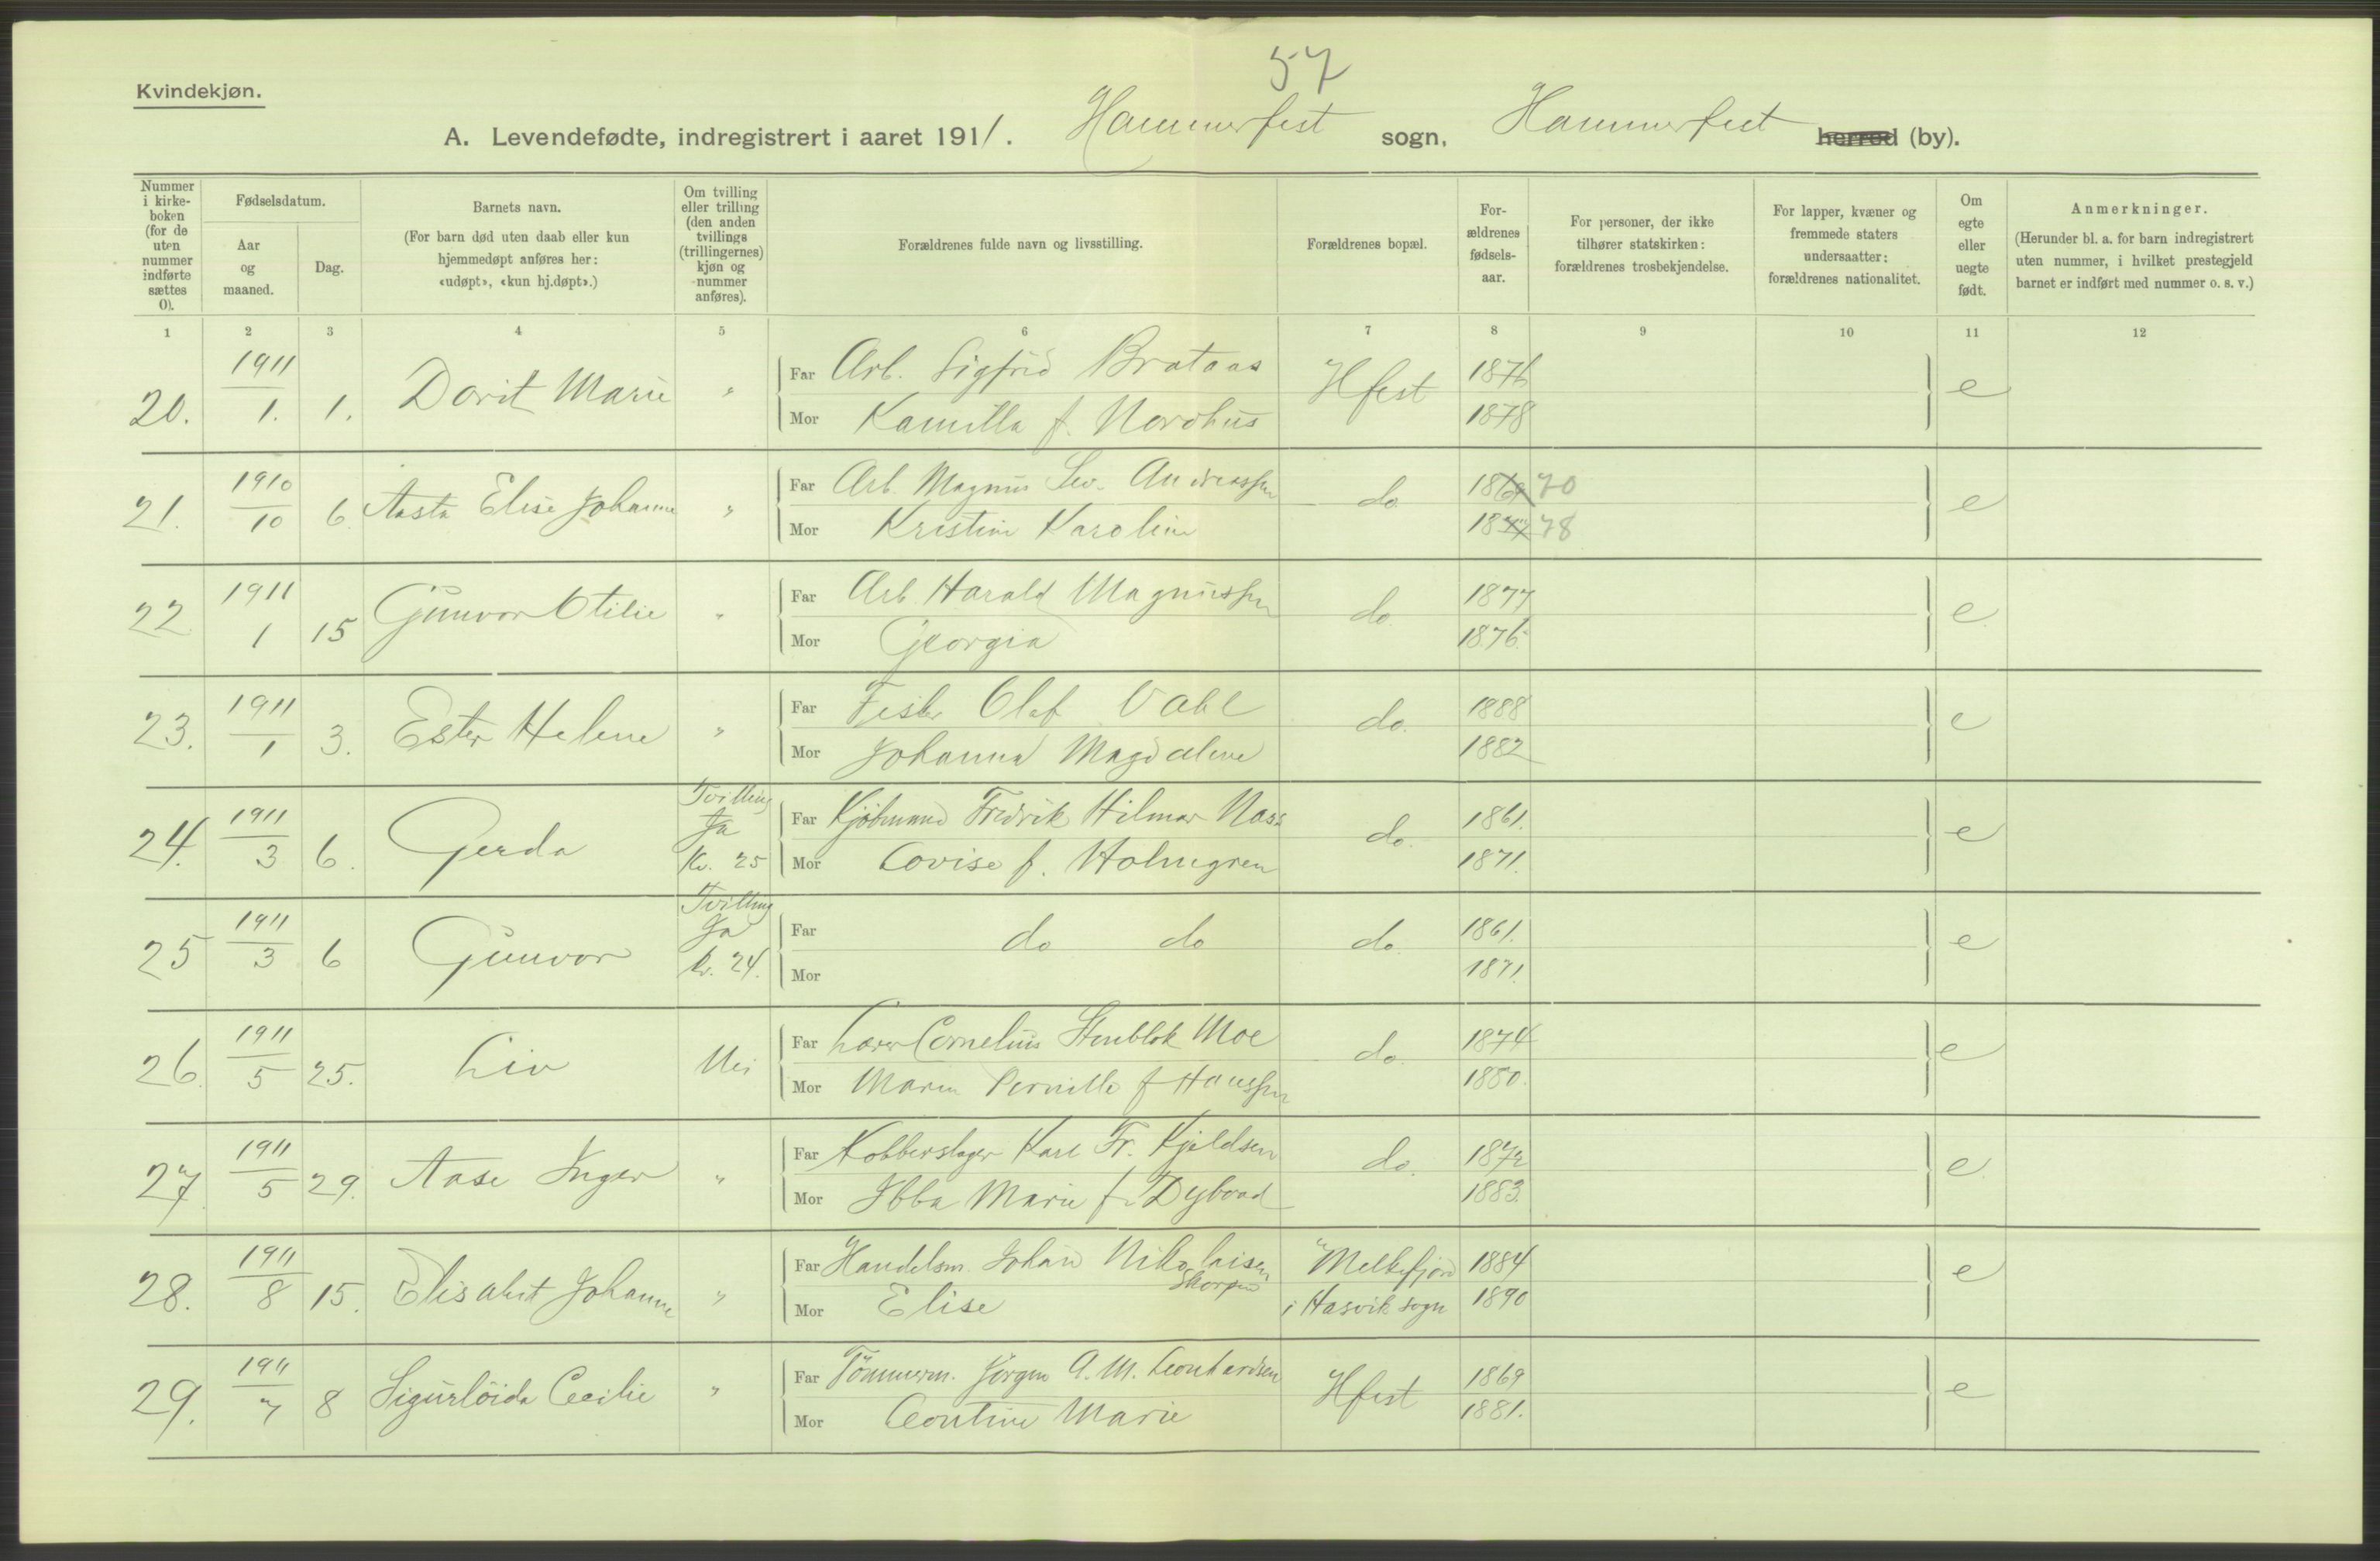 57
Kvindekjøn.
A. Levendefødte, indregistrert i aaret 1911. Hammerfest sogn, Hammerfest herred (by).
Nummer i kirkeboken (for de uten nummer indførte sættes 0).
Fødselsdatum.
Aar og maaned.
Dag.
Barnets navn.
(For barn død uten daab eller kun hjemmedøpt anføres her: «udøpt», «kun hj.døpt».)
Om tvilling eller trilling (den anden tvillings (trillingernes) kjøn og nummer anføres).
Forældrenes fulde navn og livsstilling.
Forældrenes bopæl.
Forældrenes fødselsaar.
For personer, der ikke tilhører statskirken: forældrenes trosbekjendelse.
For lapper, kvæner og fremmede staters undersaatter: forældrenes nationalitet.
Om egte eller uegte født.
Anmerkninger.
(Herunder bl. a. for barn indregistrert uten nummer, i hvilket prestegjeld barnet er indført med nummer o. s. v.)
1 2 3 4 5 6 7 8 9 10 11 12
20. 1911/1. 1. Dorit Marie " Far Arb. Sigfrid Brataas Hfest 1876 e
Mor Kamilla f. Nordhus 1878
21. 1910/10 6. Aasta Elise Johanne " Far Arb. Magnus Andreassen do. 1869 70 e
Mor Kristine Karoline 78
22 1911 1 15 Gunvor Otilie " Far Arb. Harald Magnussen do. 1877 e
Mor Georgia 1876.
23. 1911/1 3. Ester Helene " Far Fisker Olaf Dahl do. 1888 e
Mor Johanna Magdalene 1882
24. 1911/3 6. Gerda Tvilling Ja Kv. 25 Far Kjøbmand Fredrik Hilmar Nass do. 1861. e
Mor Lovise f. Holmgren 1871.
25 1911/3 6 Gunvor Tvilling Ja Kv. 24. Far do do do. 1861. e
Mor 1871.
26. 1911/5 25. Liv Nei Far Lærer Cornelius Stenblok Moe do. 1874 e
Mor Maren Pernille f Hanssen 1880.
27. 1911/5 29. Aase Inger " Far Kobberslager Karl Fr. Kjeldsen do. 1872 e
Mor Ebba Marie f. Dybvad 1883.
28. 1911/8 15. Elisabet Johanne " Far Handelsm. Johan Nikolaisen Skorpen Melkefjord 1884 e
Mor Elise i Hasvik sogn 1890
29. 1911/7 8 Sigurlöida Cecilie " Far Tömmerm. Jörgen A. M. Leonhardsen Hfest 1869 e
Mor Leontine Marie 1881.